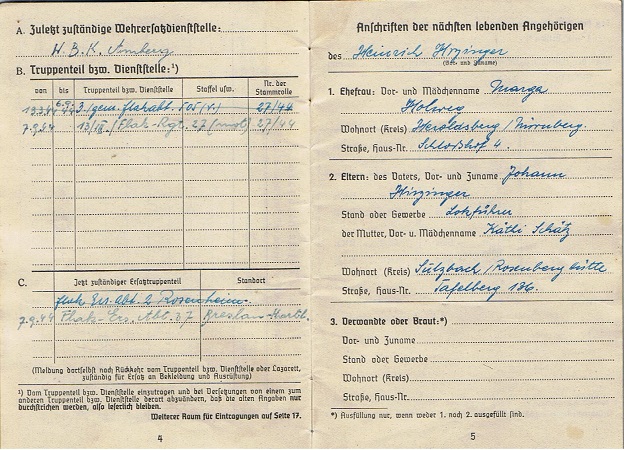 A. Zuletzt zuständige Wehrersatzdienststelle:
W. B. K. Amberg
B. Truppenteil bzw. Dienststelle:¹)
von bis Truppenteil bzw. Dienststelle Staffel usw. Nr. der Stammrolle
3./gem. Flakabt. 505 (v.) 27/44
7.9.44 13/III./Flak-Rgt. 27 (mot) 27/44
C. Jetzt zuständiger Ersatztruppenteil Standort
Flak Ers. Abt. 2 Rosenheim
7.9.44 Flak-Ers. Abt. 37 Breslau-
(Meldung dortselbst nach Rückkehr vom Truppenteil bzw. Dienststelle oder Lazarett,
zuständig für Ersatz an Bekleidung und Ausrüstung)
¹) Vom Truppenteil bzw. Dienststelle einzutragen und bei Versetzungen von einem zum
anderen Truppenteil bzw. Dienststelle derart abzuändern, daß die alten Angaben nur
durchstrichen werden, also leserlich bleiben.
Weiterer Raum für Eintragungen auf Seite 17.
4
Anschriften der nächsten lebenden Angehörigen
des Heinrich Hirzinger
(Vor- und Zuname)
1. Ehefrau: Vor- und Mädchenname Marga
Holweg
Wohnort (Kreis) Heroldsberg/Nürnberg
Straße, Haus-Nr. Schloßhof 4.
2. Eltern: des Vaters, Vor- und Zuname Johann
Hirzinger
Stand oder Gewerbe Lokführer
der Mutter, Vor- u. Mädchenname Käthi Schätz
Wohnort (Kreis) Sulzbach/Rosenberg Hütte
Straße, Haus-Nr. Tafelberg 136.
3. Verwandte oder Braut:*)
Vor- und Zuname
Stand oder Gewerbe
Wohnort (Kreis)
Straße, Haus-Nr.
*) Ausfüllung nur, wenn weder 1. noch 2. ausgefüllt sind.
5